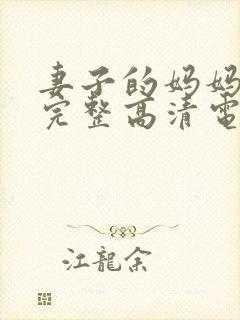 妻子的妈妈
完整高清电
江龍余